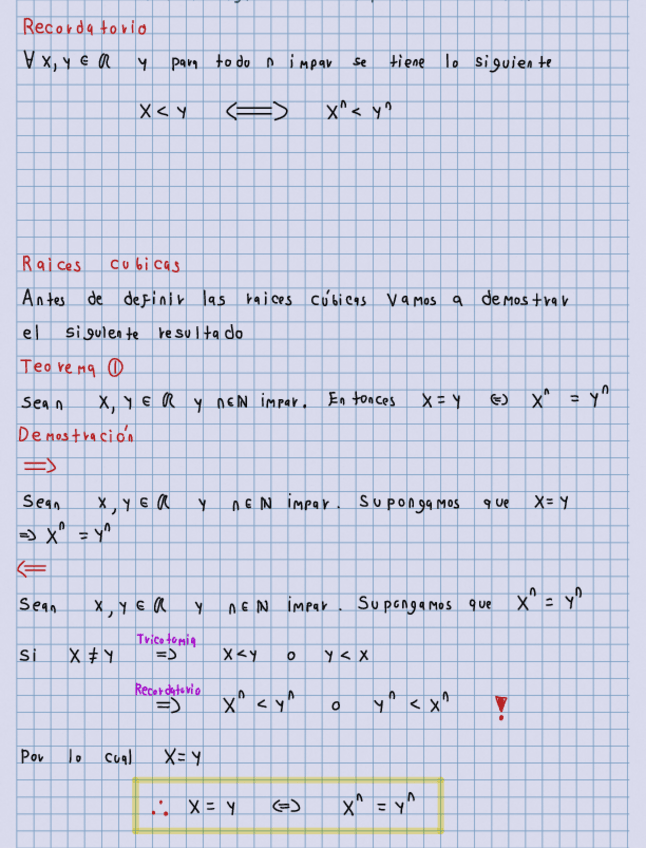 Recordatorio
∀ x, y ∈ ℝ y para todo n impar se tiene lo siguiente
x < y ⟺ xⁿ < yⁿ
Raices cubicas
Antes de definir las raices cúbicas vamos a demostrar
el siguiente resultado
Teorema ①
Sean x, y ∈ ℝ y n∈ℕ impar. Entonces x = y ⟺ xⁿ = yⁿ
Demostración
⟹
Sean x, y ∈ ℝ y n ∈ ℕ impar. Supongamos que x = y
⟹ xⁿ = yⁿ
⟸
Sean x, y ∈ ℝ y n ∈ ℕ impar. Supongamos que xⁿ = yⁿ
Si x ≠ y Tricotomia ⟹ x < y o y < x
Recordatorio ⟹ xⁿ < yⁿ o yⁿ < xⁿ !
Por lo cual x = y
∴ x = y ⟺ xⁿ = yⁿ